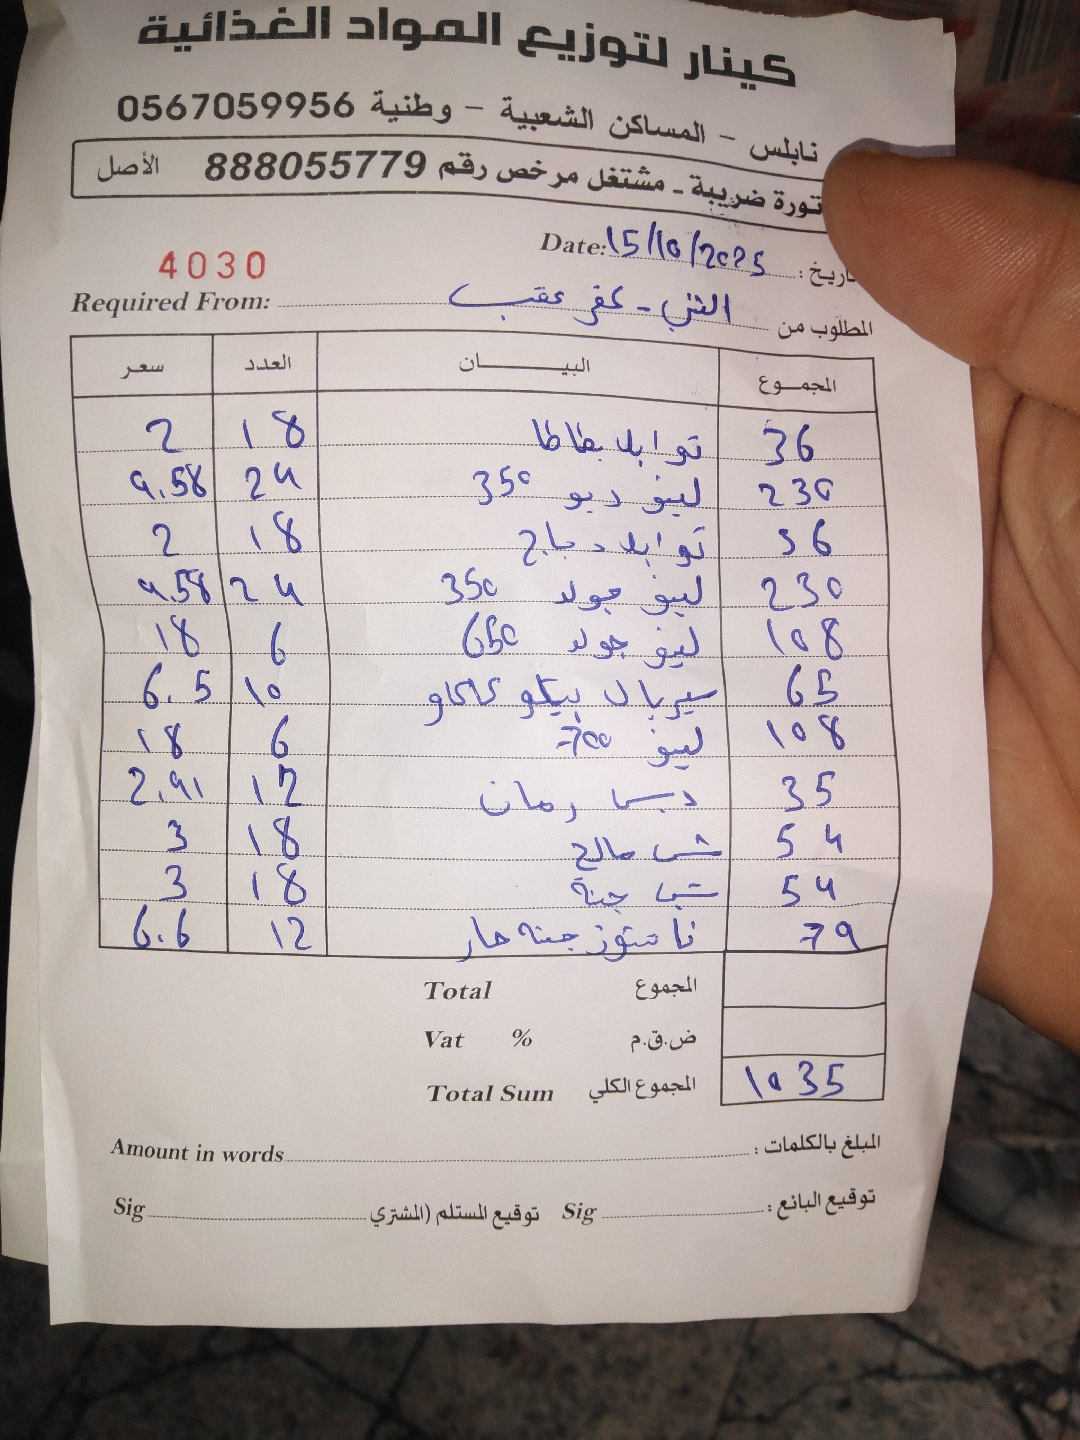 كينار لتوزيع المواد الغذائية
نابلس - المساكن الشعبية - وطنية 0567059956
تورة ضريبة - مشتغل مرخص رقم 888055779 الأصل
اريخ : Date: 15/10/2025
4030
المطلوب من كفر عقب Required From:
المجموع البيان العدد سعر
36 توابل بطاطا 18 2
230 ليف ديو 350 24 9.58
36 توابل دجاج 18 2
230 ليف جولد 350 24 9.58
108 ليف جولد 650 6 18
65 سيريال بيكو كاكاو 10 6.5
108 ليف 700 6 18
35 دبس رمان 12 2.91
54 شبس مالح 18 3
54 شبس جبنة 18 3
79 ناتشوز جبنه حار 12 6.6
المجموع Total
ض.ق.م % Vat
1035 المجموع الكلي Total Sum
المبلغ بالكلمات : Amount in words
توقيع البائع : Sig توقيع المستلم (المشتري Sig